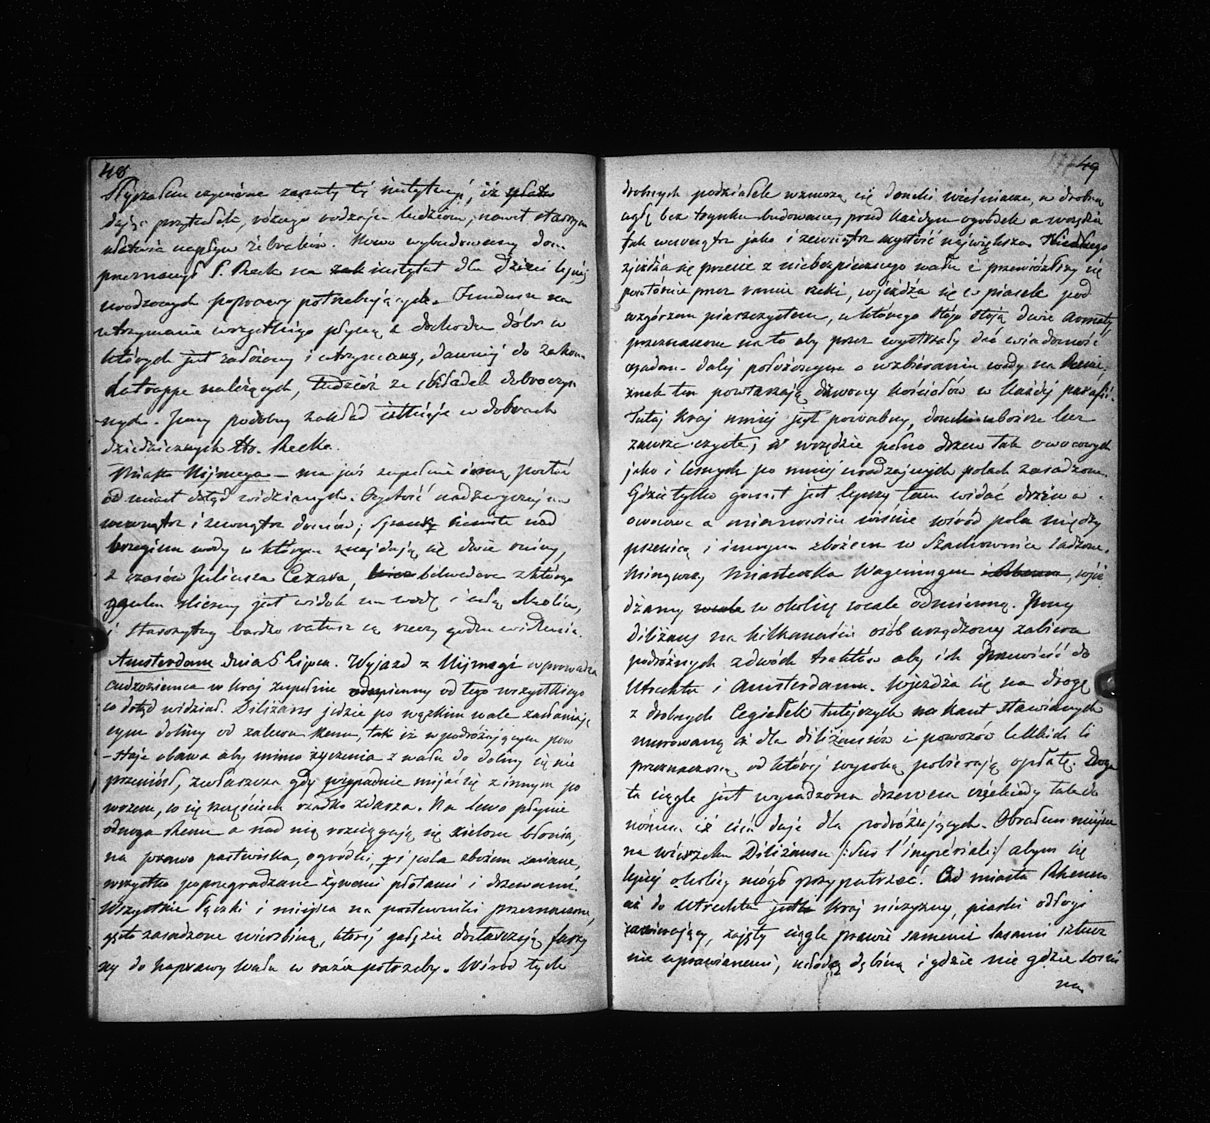 48
Słyszałem czynione zarzuty tej instytucyi, iż
dając przytułek, różnego rodzaju ludziom, nawet starym
ułatwia napływ żebraków. Nowo wybudowany dom
przeznaczył P. Reck na instytut dla dzieci lepiej
urodzonych poprawy potrzebujących. Fundusz na
utrzymanie wszystkiego płynie z dochodu dóbr w
których jest założony i utrzymany, dawniej do zakonu
Latrappe należących, tudzież ze składek dobroczyn
nych. Inny podobny zakład istnieje w dobrach
dziedzicznych Hr. Recka.
Miasto Nijmega – ma już zupełnie inną postać
od miast dotąd widzianych. Czystość nadzwyczajna
wewnątrz i zewnątrz domów; nad
brzegiem wody w którym znajdują się dwie ruiny,
z czasów Juliusza Cezara, belwedere z którego
śliczny jest widok na wodę i całą okolicę,
i starożytny bardzo ratusz są rzeczy godne widzenia.
Amsterdam dnia 5 Lipca. Wyjazd z Nijmegi wprowadza
cudzoziemca w kraj zupełnie odmienny od tego wszystkiego
co dotąd widział. Diliżans jedzie po wązkim wale zasłaniają
cym doliny od zalewu Renu, tak iż w podróżującym pow
staje obawa aby mimo życzenia z wału do doliny się nie
przeniósł, zwłaszcza gdy przypadnie mijać się z innym po
wozem, co się na szczęście rzadko zdarza. Na lewo płynie
odnoga Renu a nad nią rozciągają się zielone błonia,
na prawo pastwiska, ogródki, i pola zbożem zasiane,
wszystko poprzegradzane żywemi płotami i drzewami.
Wszystkie łączki i miejsca na pastewniki przeznaczone,
gęsto zasadzone wierzbiną, której gałęzie dostarczają faszy
ny do naprawy wału w razie potrzeby. Wśród tych
49
drobnych podziałek wznoszą się domki wieśniacze, z drobnej
cegły bez tynku budowane, przed każdym ogródek a wszędzie
tak wewnątrz jako i zewnątrz czystość największa.
zjeżdża się przecie z niebezpiecznego wału i przewiózłszy się
powtórnie przez ramie rzeki, wjeżdża się w piasek pod
wzgórzem piaszczystem, u którego stoją dwie armaty
przeznaczone na to aby przez wystrzały dać wiadomość
osadom dalej położonym o wzbieraniu wody na Renie,
znak ten powtarzają dzwony kościołów w każdej parafii.
Tutaj kraj mniej jest powabny, domki uboższe lecz
zawsze czyste, i wszędzie pełno drzew tak owocowych
jako i leśnych po mniej urodzajnych polach zasadzone.
Gdzie tylko grunt jest lepszy tam widać drzewa
owocowe a mianowicie wiśnie wśród pola między
pszenicą i innym zbożem w szachownice sadzone.
Minąwszy miasteczka Wageningen i Rhenen, wjeż
dżamy w okolicę wcale odmienną. Inny
diliżans na kilkanaście osób urządzony zabiera
podróżnych z dwóch traktów aby ich przewieść do
Utrechtu i Amsterdamu. Wjeżdża się na drogę
z drobnych cegiełek tutejszych na kant stawianych
murowaną aż dla diliżansów i powozów lekkich li
przeznaczoną, od której wysoką pobierają opłatę. Droga
ta ciągle jest wysadzona drzewem czyli tak do
iż cień daje dla podróżujących. Obrałem miejsce
na wierzchu Diliżansu /: sur l'impériale :/ abym się
lepiej okolicy mógł przypatrzeć. Od miasta Rhenen
aż do Utrechtu kraj niżyny, piaski odłogi
zajęty ciągle prawie samemi lasami sztucz
nie uprawianemi, młodą dębiną i gdzie nie gdzie sosni
na